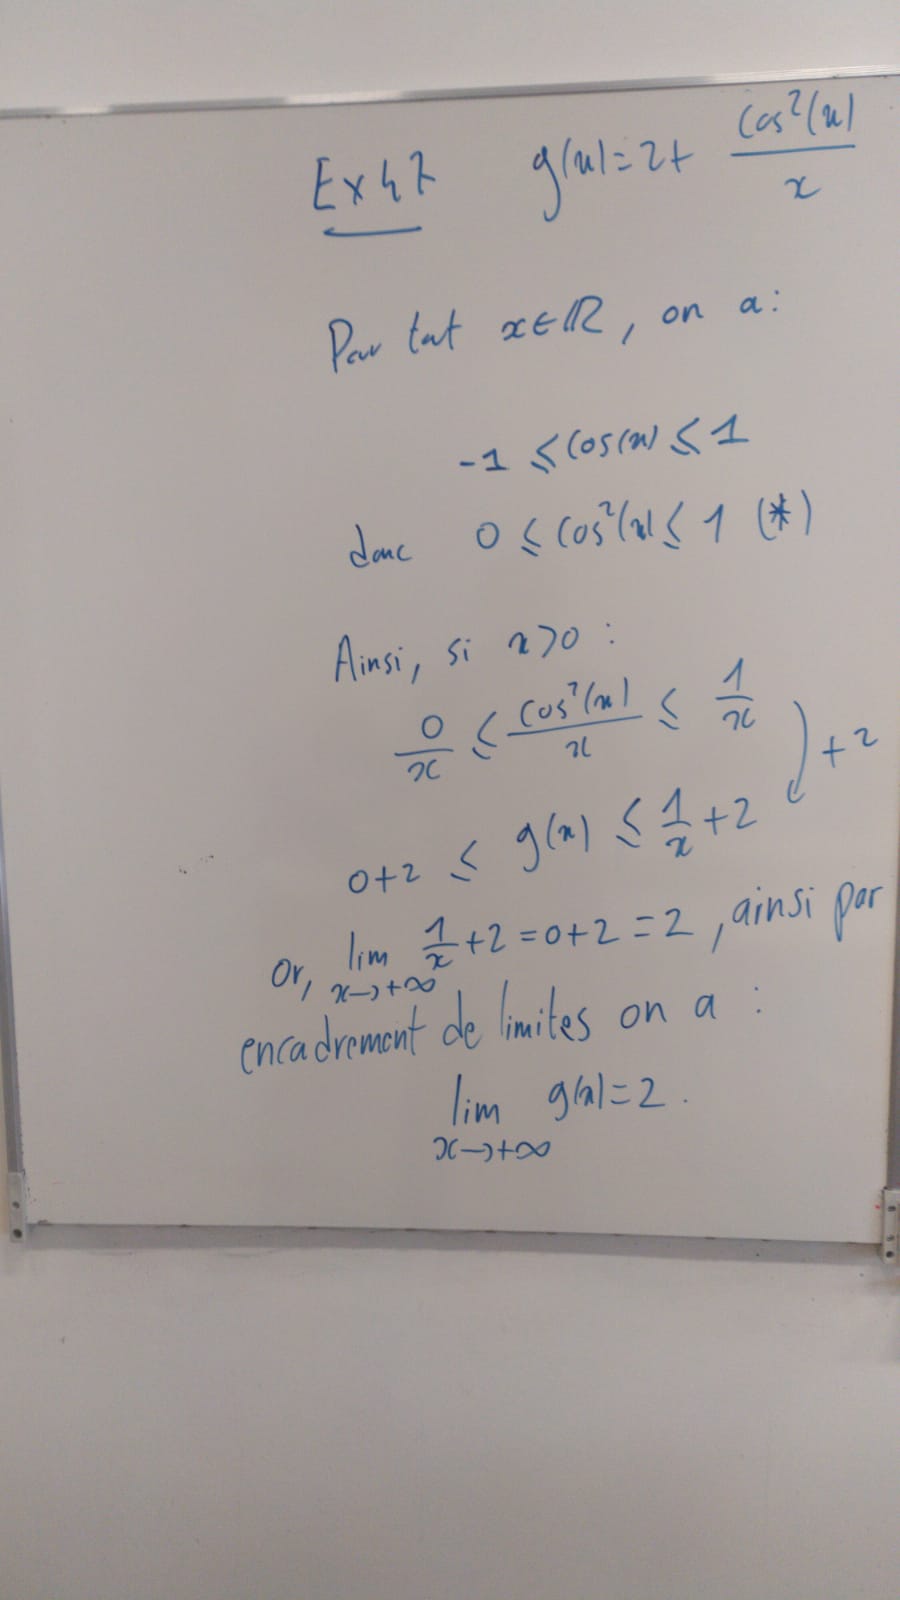 Ex 47 g(x)=2+ cos²(x)/x
Pour tout x∈ℝ, on a:
-1 ≤ cos(x) ≤ 1
donc 0 ≤ cos²(x) ≤ 1 (*)
Ainsi, si x>0 :
0/x ≤ cos²(x)/x ≤ 1/x
+2
0+2 ≤ g(x) ≤ 1/x +2
Or, lim x→+∞ 1/x +2 =0+2 =2, ainsi par
encadrement de limites on a :
lim x→+∞ g(x)=2.